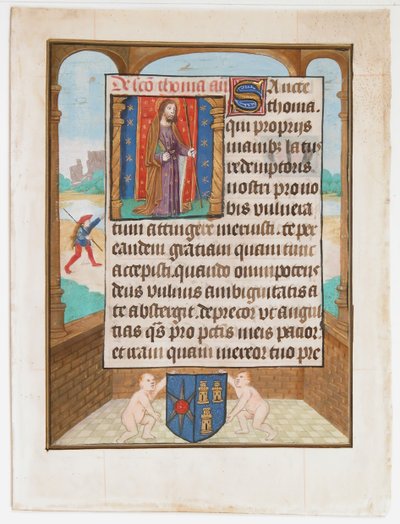 De sc̄o thoma an̄
SAncte
thoma.
qui proprijs
manib; latus
redemptoris
nostri pro no
bis vulnera
tum attingere meruisti. te per
eandem gratiam quam tunc
accepisti. quando omnipotens
deus vulnus ambiguitatis a
te abstergit. deprecor vt angus
tias q̄s pro pctīs meis patior
et iram quam mereor tuo pre